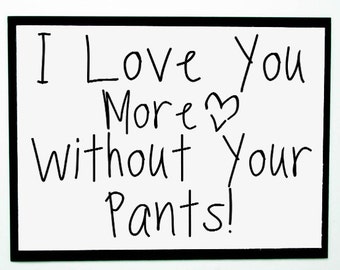 I Love You
More♡
Without Your
Pants!